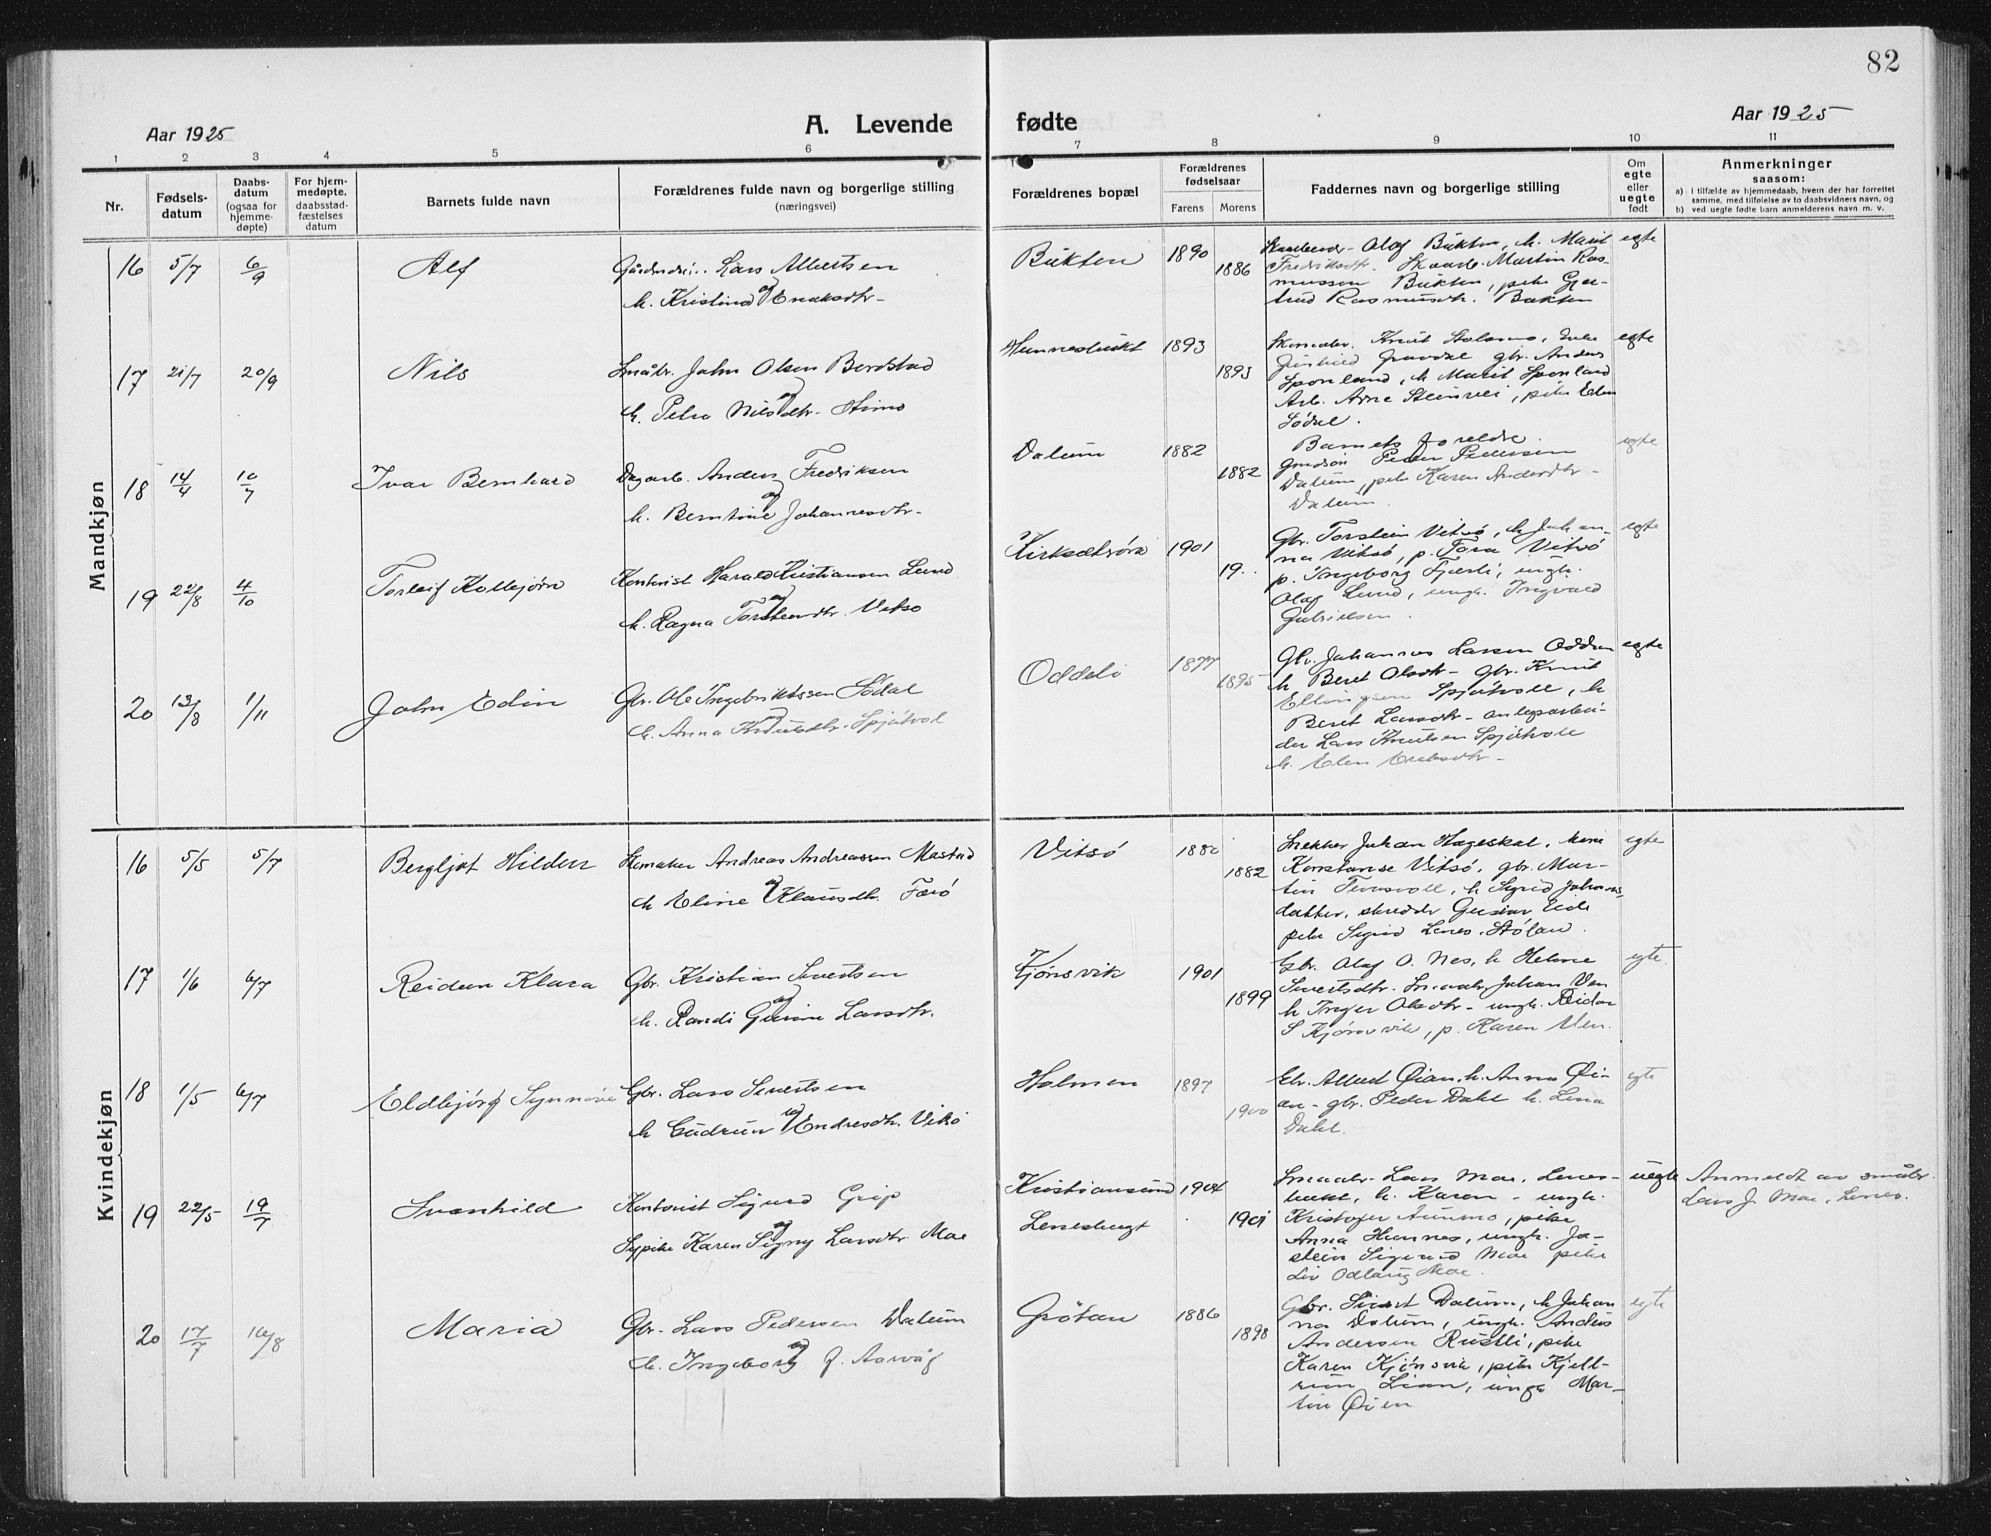 82
Aar 1925
A. Levende
fødte
Aar 1925
1 2 3 4 5 6 7 8 9 10 11
Nr.
Fødsels-
datum
Daabs-
datum
(ogsaa for
hjemme-
døpte)
For hjem-
medøpte.
daabsstad-
fæstelses
datum
Barnets fulde navn
Forældrenes fulde navn og borgerlige stilling
(næringsvei)
Forældrenes bopæl
Forældrenes
fødselsaar
Farens Morens
Faddernes navn og borgerlige stilling
Om
egte
eller
uegte
født
Anmerkninger
saasom:
a) I tilfælde av hjemmedaab, hvem der har forrettet
samme, med tilføielse av to daabsvidners navn, og
b) ved uegte fødte barn anmelderens navn m. v.
Mandkjøn
16 5/7 6/9 Alf
Lars Albertsen
h. Kristina og
Bukten 1890 1886
Olaf Bukten, h. Marit
Fredriksdtr. Skaarb. Martin Ras-
mussen Bukten, pike Gjer-
trud Rasmusdtr. Bukten
egte
17 21/7 20/9 Nils
Småbr. John Olsen Bordstad
og
h. Petra Nilsdtr.
1893 1893
Knut
gbr. Anders
Sponland, h Marit Sponland
Arb. Arne Steinvei, pike
Södal.
egte
18 14/4 10/7 Ivar Bernhard
Dagarb. Anders Fredriksen
og
h. Berntine Johannesdtr.
Dalum 1882 1882
Barnets foreldre.
Peder Pedersen
Dalum, pike Karen Andersdtr.
Dalum
egte
19 22/8 4/10 Torleif Kolbjörn
Kontorist Harald Kristiansen Lund
og
h. Ragna Torsteindtr. Vitsö
Kirksæterøra 1901 19..
Gbr. Torstein Vitsö, h Johan-
na Vitsö, p. Tora Vitsö
p. Ingeborg Fjerli, ungk.
Olaf Lund, ungk. Ingvald
Gabrielsen.
egte
20 13/8 1/11 John Edin
Gbr. Ole Ingebriktssen Södal
og
h. Anna Knutsdtr. Spjötvol
Oddeli 1877 1895
Gbr. Johannes Larsen Odden
h Beret Olsdtr - gbr. Knut
Ellingsen Spjötvoll, h
Beret Larsdtr - anlegsarbei-
der Lars Knutsen Spjötvoll
h. Elen
egte
Kvindekjøn
16 5/5 5/7 Bergljot Hildur
Andreas Andreassen Mastad
og
h Eline Klausdtr. Færö
Vitsö 1880 1882
Snekker Johan Hageskal,
Konstanse Vitsö, gbr. Mar-
tin Tennsvoll, h Sigrid Johannes-
datter, skredder Gustav Eide
pike Sigrid Lenes, Stölan.
egte
17 1/6 6/7 Reidun Klara
Gbr. Kristian Sivertsen
og
h. Randi Gurine Larsdtr.
Kjönsvik 1901 1899
Gbr. Olaf O. Nes, h Helene
Sivertsdtr. Småbr. Johan Ven
h Inger Olsdtr - ungk. Reidar
S Kjönsvik, p. Karen Ven.
egte
18 1/5 6/7 Eldbjörg Synnöve
Gbr. Lars Sivertsen
og
h Gudrun Endresdtr. Vitsö
Holmen 1897 1900
Gbr. Albert Øian, h. Anna Øi-
an - gbr. Peder Dahl h. Lina
Dahl.
egte
19 22/5 19/7 Svanhild
Kontorist Sigurd Grip
og
Sypike Karen Signy Larsdtr Moe
Kristiansund 1904
Lenesbugt 1901
Småbr. Lars Moe, Lenes-
bukt, h. Karen - ungk.
Kristofer Aunmo, pike
Anna Hennes, ungk. Jo-
stein Sigurd Moe pike
Liv Odlaug Moe.
uegte Anmeldt av småbr.
Lars J. Moe, Lenes.
20 17/7 16/8 Maria
Gbr. Lars Pedersen Dalum
og
h. Ingeborg f. Aarvåg
Grötan 1886 1898
Gbr. Sivert Dalum, h Johan
na Dalum, ungk. Anders
Andersen Rustli, pike
Karen Kjönsvik, pike Kjell-
run Lian, ungk Mar-
tin Øien
egte